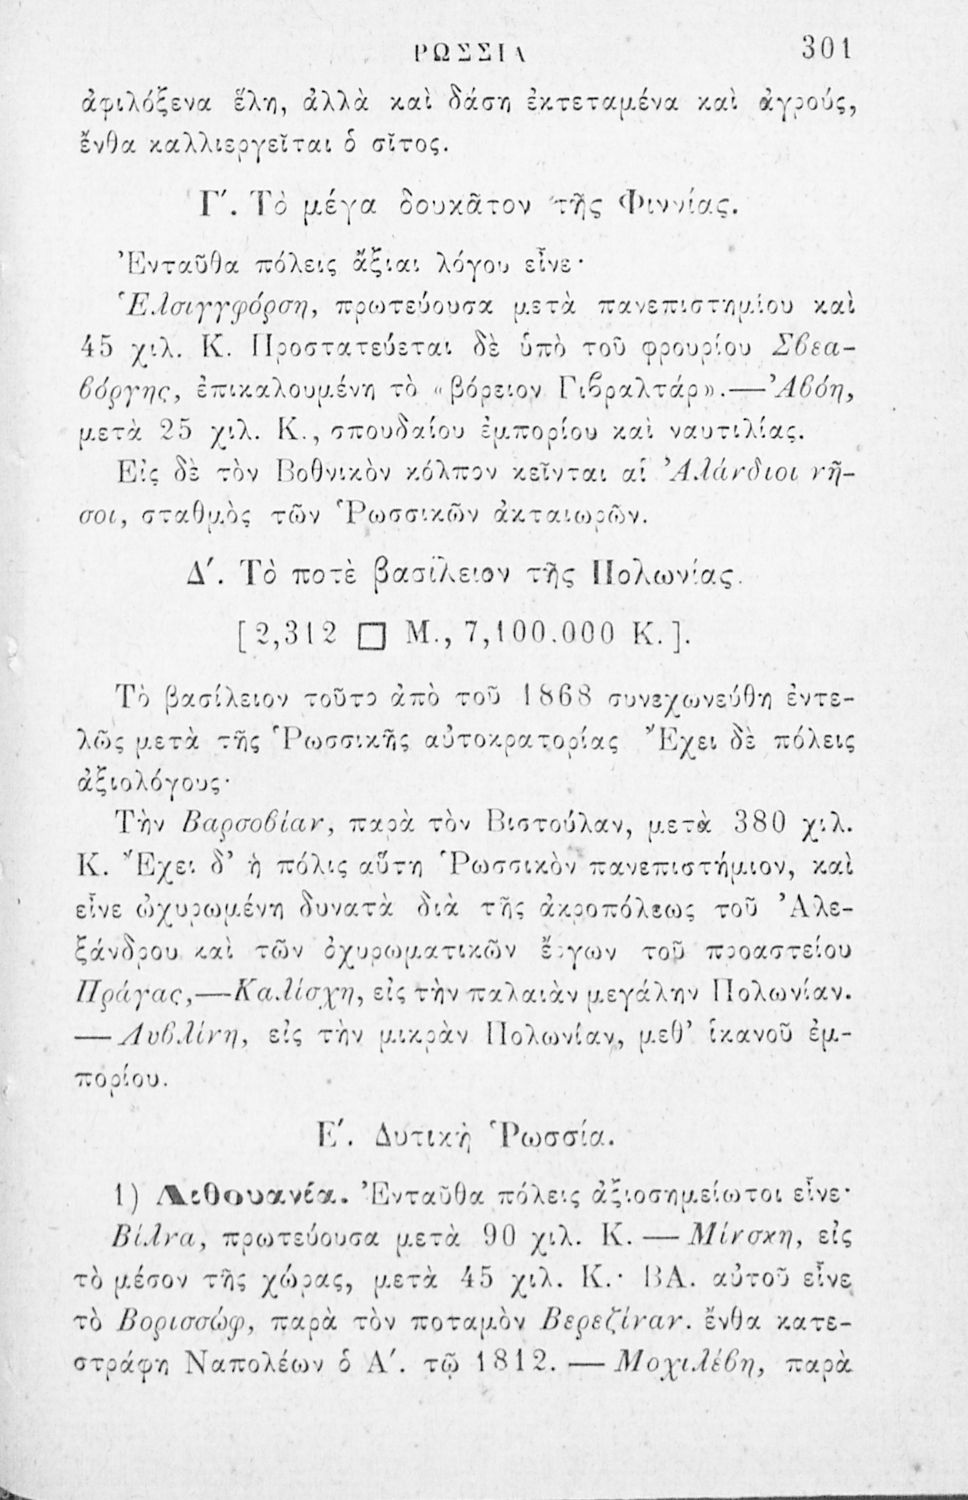 ΡΩΣΣΙΑ 301
ἀφιλόξενα ἕλη, ἀλλὰ καὶ δάση ἐκτεταμένα καὶ ἀγροὺς,
ἔνθα καλλιεργεῖται ὁ σῖτος.
Γ΄. Τὸ μέγα δουκᾶτον τῆς Φιννίας.
Ἐνταῦθα πόλεις ἄξιαι λόγου εἶνε·
Ἑλσιγγφόρση, πρωτεύουσα μετὰ πανεπιστημίου καὶ
45 χιλ. Κ. Προστατεύεται δὲ ὑπὸ τοῦ φρουρίου Σβεα-
βόργης, ἐπικαλουμένη τὸ «βόρειον Γιβραλτάρ».—Ἀβόη,
μετὰ 25 χιλ. Κ., σπουδαίου ἐμπορίου καὶ ναυτιλίας.
Εἰς δὲ τὸν Βοθνικὸν κόλπον κεῖνται αἱ Ἀλάνδιοι νῆ-
σοι, σταθμὸς τῶν Ῥωσσικῶν ἀκταιωρῶν.
Δ΄. Τὸ ποτὲ βασίλειον τῆς Πολωνίας.
[2,312 □ Μ., 7,100.000 Κ.].
Τὸ βασίλειον τοῦτο ἀπὸ τοῦ 1868 συνεχωνεύθη ἐντε-
λῶς μετὰ τῆς Ῥωσσικῆς αὐτοκρατορίας Ἔχει δὲ πόλεις
ἀξιολόγους·
Τὴν Βαρσοβίαν, παρὰ τὸν Βιστούλαν, μετὰ 380 χιλ.
Κ. Ἔχει δ’ ἡ πόλις αὕτη Ῥωσσικὸν πανεπιστήμιον, καὶ
εἶνε ὠχυρωμένη δυνατὰ διὰ τῆς ἀκροπόλεως τοῦ Ἀλε-
ξάνδρου καὶ τῶν ὀχυρωματικῶν ἔργων τοῦ προαστείου
Πράγας,—Καλίσχη, εἰς τὴν παλαιὰν μεγάλην Πολωνίαν.
—Λυβλίνη, εἰς τὴν μικρὰν Πολωνίαν, μεθ’ ἱκανοῦ ἐμ-
πορίου.
Ε΄. Δυτικὴ Ῥωσσία.
1) Λιθουανία. Ἐνταῦθα πόλεις ἀξιοσημείωτοι εἶνε·
Βίλνα, πρωτεύουσα μετὰ 90 χιλ. Κ.—Μίνσκη, εἰς
τὸ μέσον τῆς χώρας, μετὰ 45 χιλ. Κ.· ΒΑ. αὐτοῦ εἶνε
τὸ Βορισσώφ, παρὰ τὸν ποταμὸν Βερεζίναν. ἔνθα κατε-
στράφη Ναπολέων ὁ Α΄. τῷ 1812.—Μοχιλέβη, παρὰ